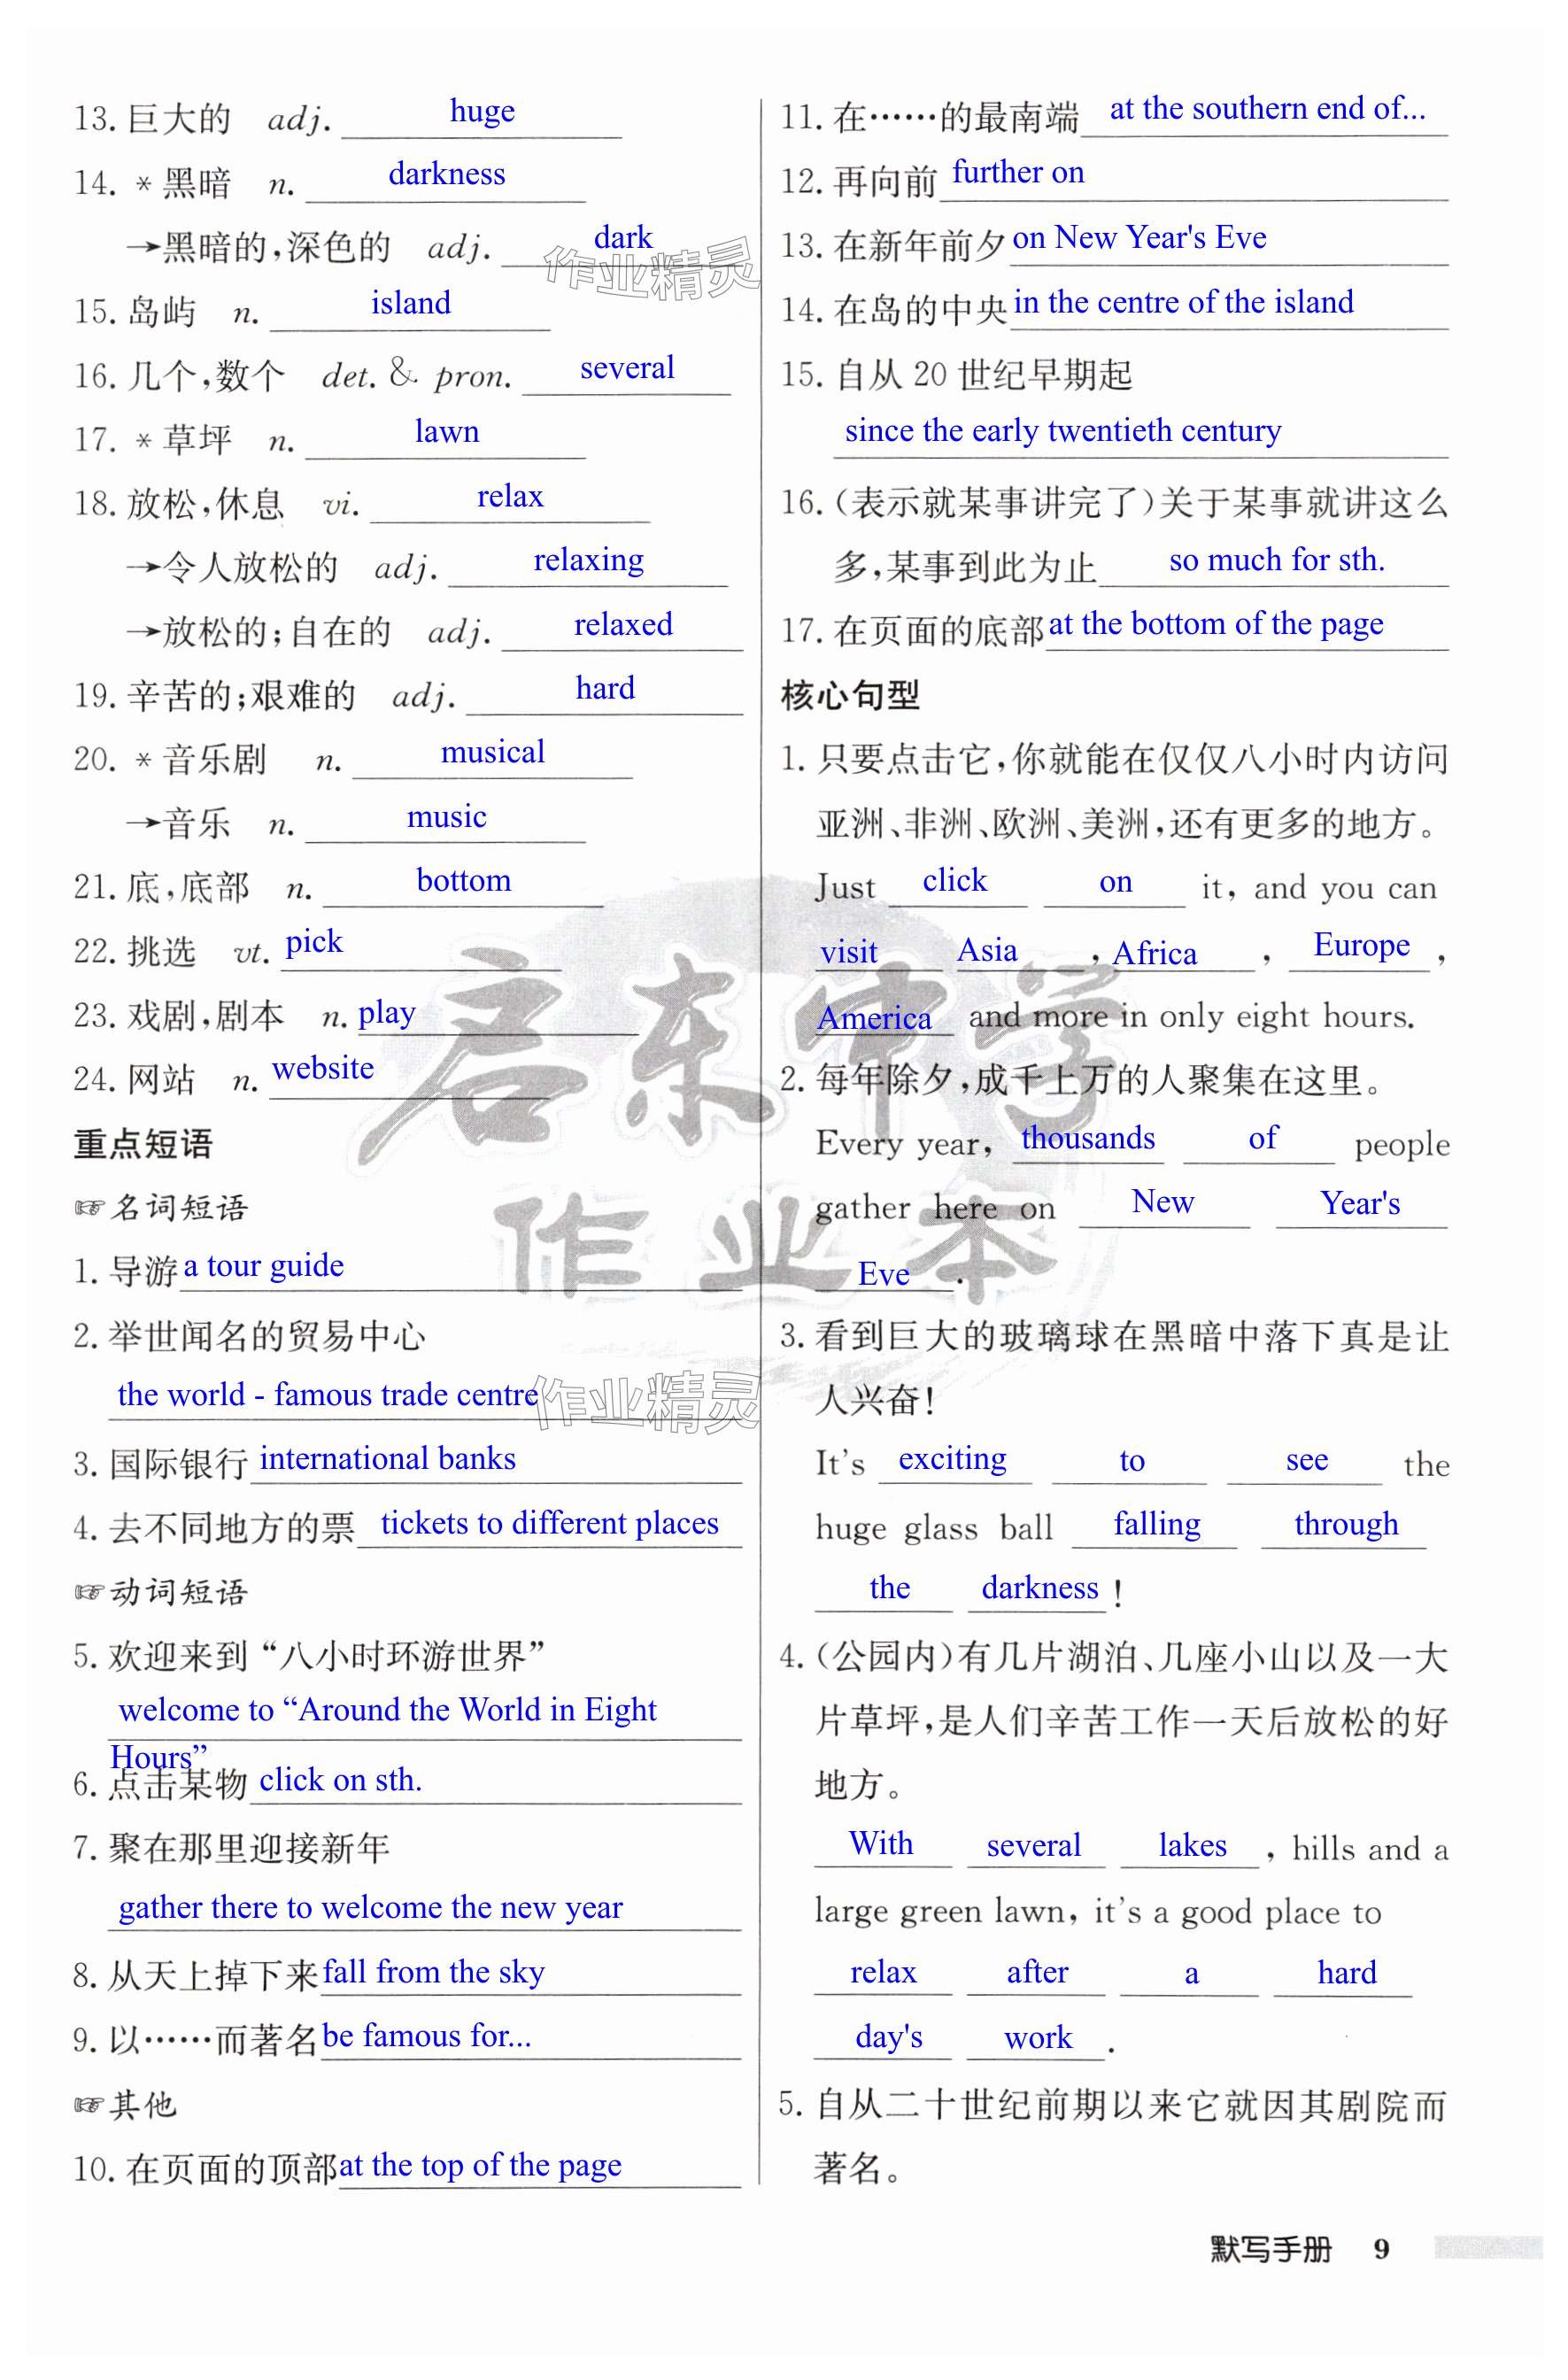 13. 巨大的 adj. huge
14. *黑暗 n. darkness
→黑暗的,深色的 adj. dark
15. 岛屿 n. island
16. 几个,数个 det. & pron. several
17. *草坪 n. lawn
18. 放松,休息 vi. relax
→令人放松的 adj. relaxing
→放松的;自在的 adj. relaxed
19. 辛苦的;艰难的 adj. hard
20. *音乐剧 n. musical
→音乐 n. music
21. 底,底部 n. bottom
22. 挑选 vt. pick
23. 戏剧,剧本 n. play
24. 网站 n. website
重点短语
☞名词短语
1. 导游 a tour guide
2. 举世闻名的贸易中心
the world - famous trade centre
3. 国际银行 international banks
4. 去不同地方的票 tickets to different places
☞动词短语
5. 欢迎来到“八小时环游世界”
welcome to “Around the World in Eight
Hours”
6. 点击某物 click on sth.
7. 聚在那里迎接新年
gather there to welcome the new year
8. 从天上掉下来 fall from the sky
9. 以……而著名 be famous for...
☞其他
10. 在页面的顶部 at the top of the page
11. 在……的最南端 at the southern end of...
12. 再向前 further on
13. 在新年前夕 on New Year's Eve
14. 在岛的中央 in the centre of the island
15. 自从 20 世纪早期起
since the early twentieth century
16. (表示就某事讲完了)关于某事就讲这么
多,某事到此为止 so much for sth.
17. 在页面的底部 at the bottom of the page
核心句型
1. 只要点击它,你就能在仅仅八小时内访问
亚洲、非洲、欧洲、美洲,还有更多的地方。
Just click on it, and you can
visit Asia , Africa , Europe ,
America and more in only eight hours.
2. 每年除夕,成千上万的人聚集在这里。
Every year, thousands of people
gather here on New Year's
Eve .
3. 看到巨大的玻璃球在黑暗中落下真是让
人兴奋!
It's exciting to see the
huge glass ball falling through
the darkness !
4. (公园内)有几片湖泊、几座小山以及一大
片草坪,是人们辛苦工作一天后放松的好
地方。
With several lakes , hills and a
large green lawn, it's a good place to
relax after a hard
day's work .
5. 自从二十世纪前期以来它就因其剧院而
著名。
默写手册 9
启东中学
作业本
作业精灵
作业精灵